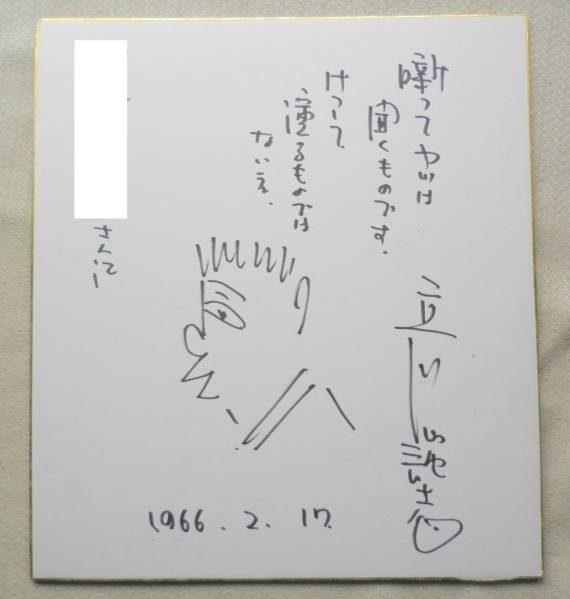 噺ってヤツは
聞くものです.
けっして
演るものでは
ないネ.
立川談志
さんに
1966.2.17